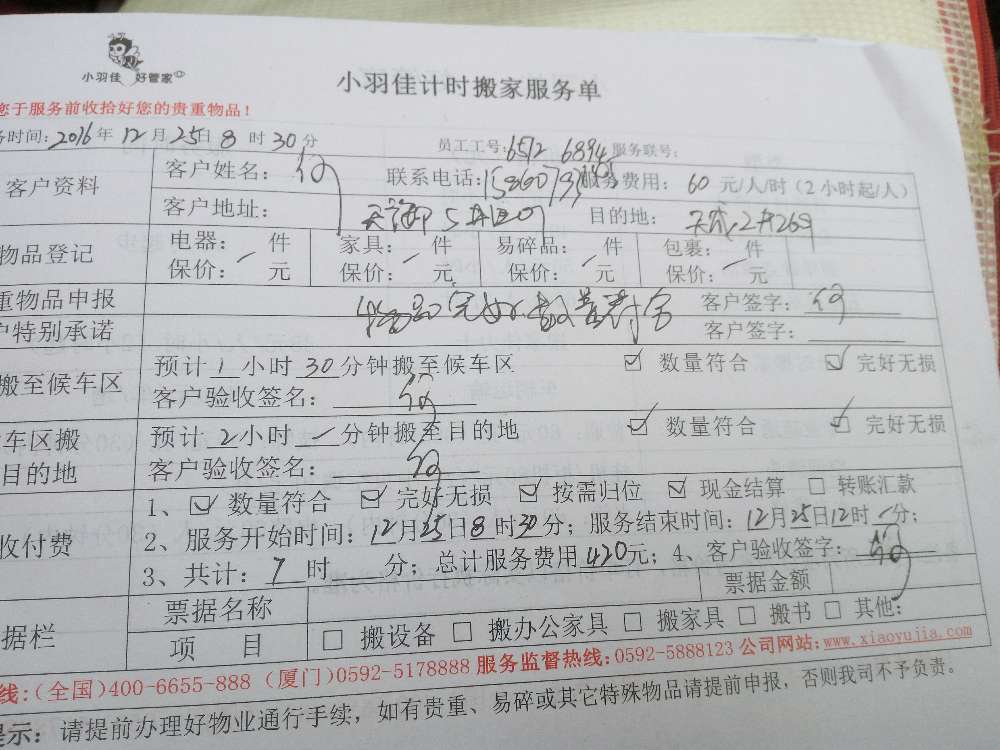 小羽佳 好管家
小羽佳计时搬家服务单
您于服务前收拾好您的贵重物品！
务时间：2016年12月25日8时30分 员工工号：6512 6894 服务联号：
客户资料 客户姓名： 联系电话： 服务费用： 60 元/人/时（2小时起/人）
客户地址： 目的地：
物品登记 电器： 件 家具： 件 易碎品： 件 包裹： 件
保价： 元 保价： 元 保价： 元 保价： 元
重物品申报 客户签字：
户特别承诺 客户签字：
搬至候车区 预计1小时30分钟搬至候车区 ☑ 数量符合 ☑ 完好无损
客户验收签名：
车区搬 预计2小时 分钟搬至目的地 ☑ 数量符合 ☑ 完好无损
目的地 客户验收签名：
1、☑ 数量符合 ☑ 完好无损 ☑ 按需归位 ☑ 现金结算 □ 转账汇款
收付费 2、服务开始时间：12月25日8时30分；服务结束时间：12月25日12时 分；
3、共计：7时 分；总计服务费用420元；4、客户验收签字：
据栏 票据名称 票据金额
项 目 □ 搬设备 □ 搬办公家具 □ 搬家具 □ 搬书 □ 其他：
线：（全国）400-6655-888（厦门）0592-5178888 服务监督热线：0592-5888123 公司网站：www.xiaoyujia.com
提示：请提前办理好物业通行手续，如有贵重、易碎或其它特殊物品请提前申报，否则我司不予负责。